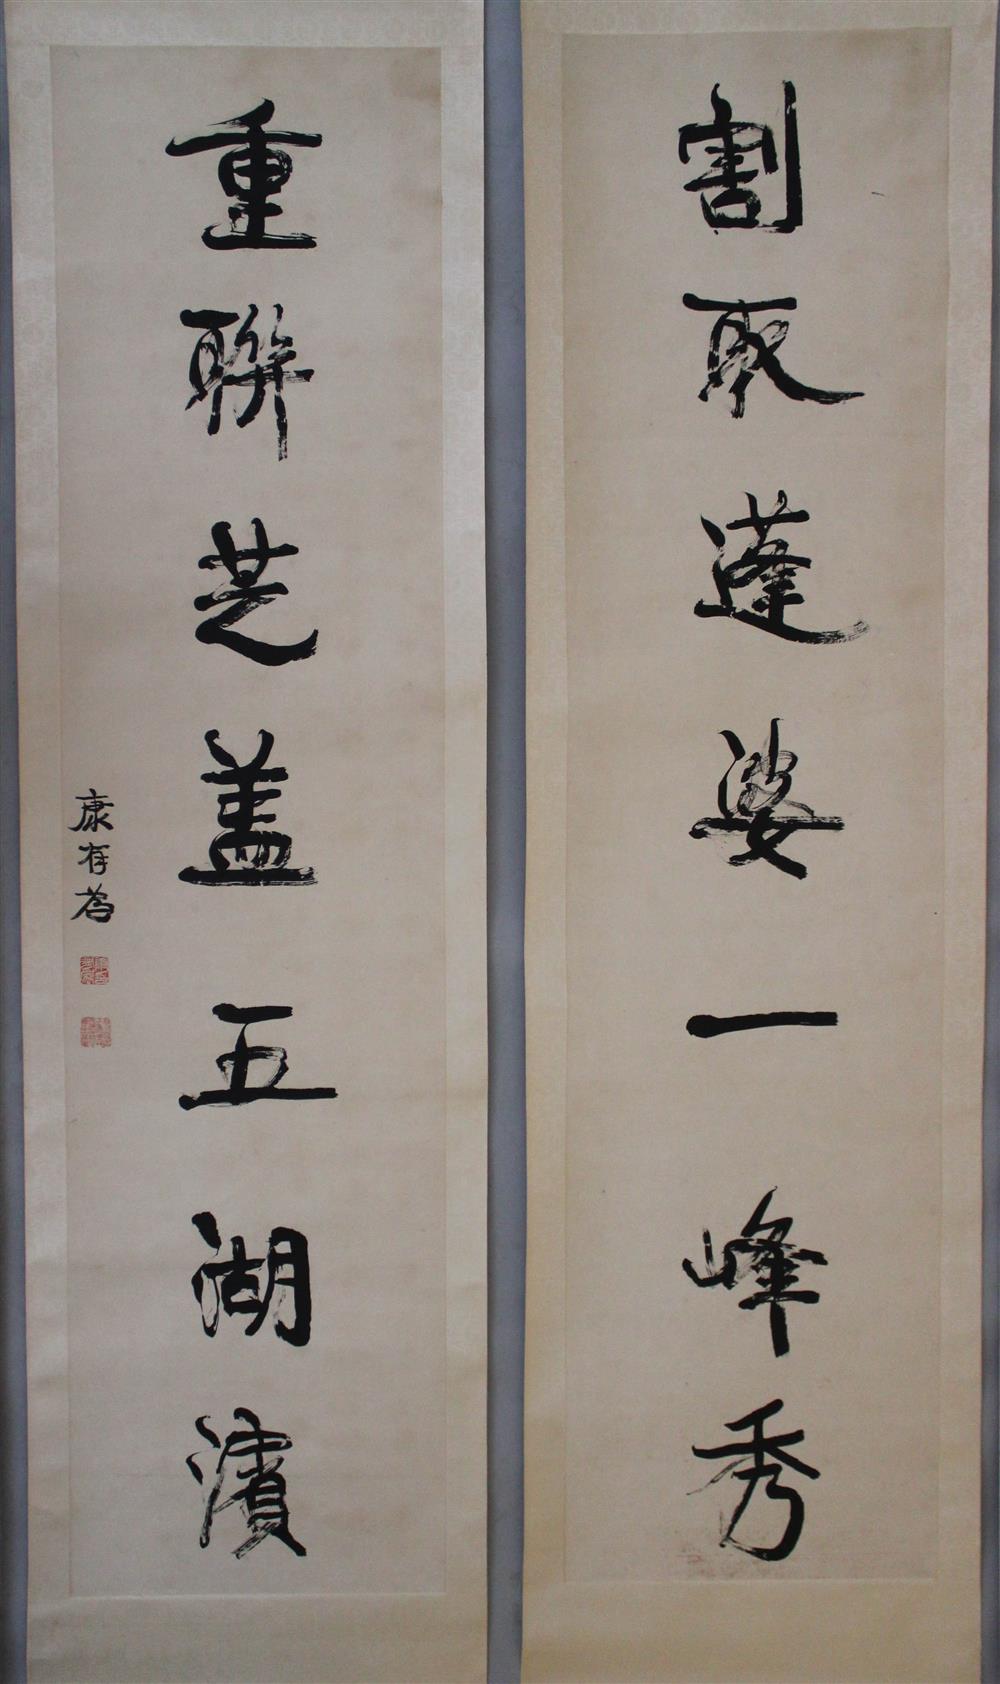 割取蓬婆一峰秀
重聯芝蓋五湖濱
康有為